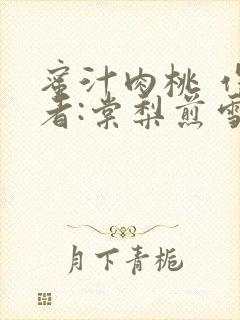 蜜汁肉桃 作
者:棠梨煎雪
月下青栀